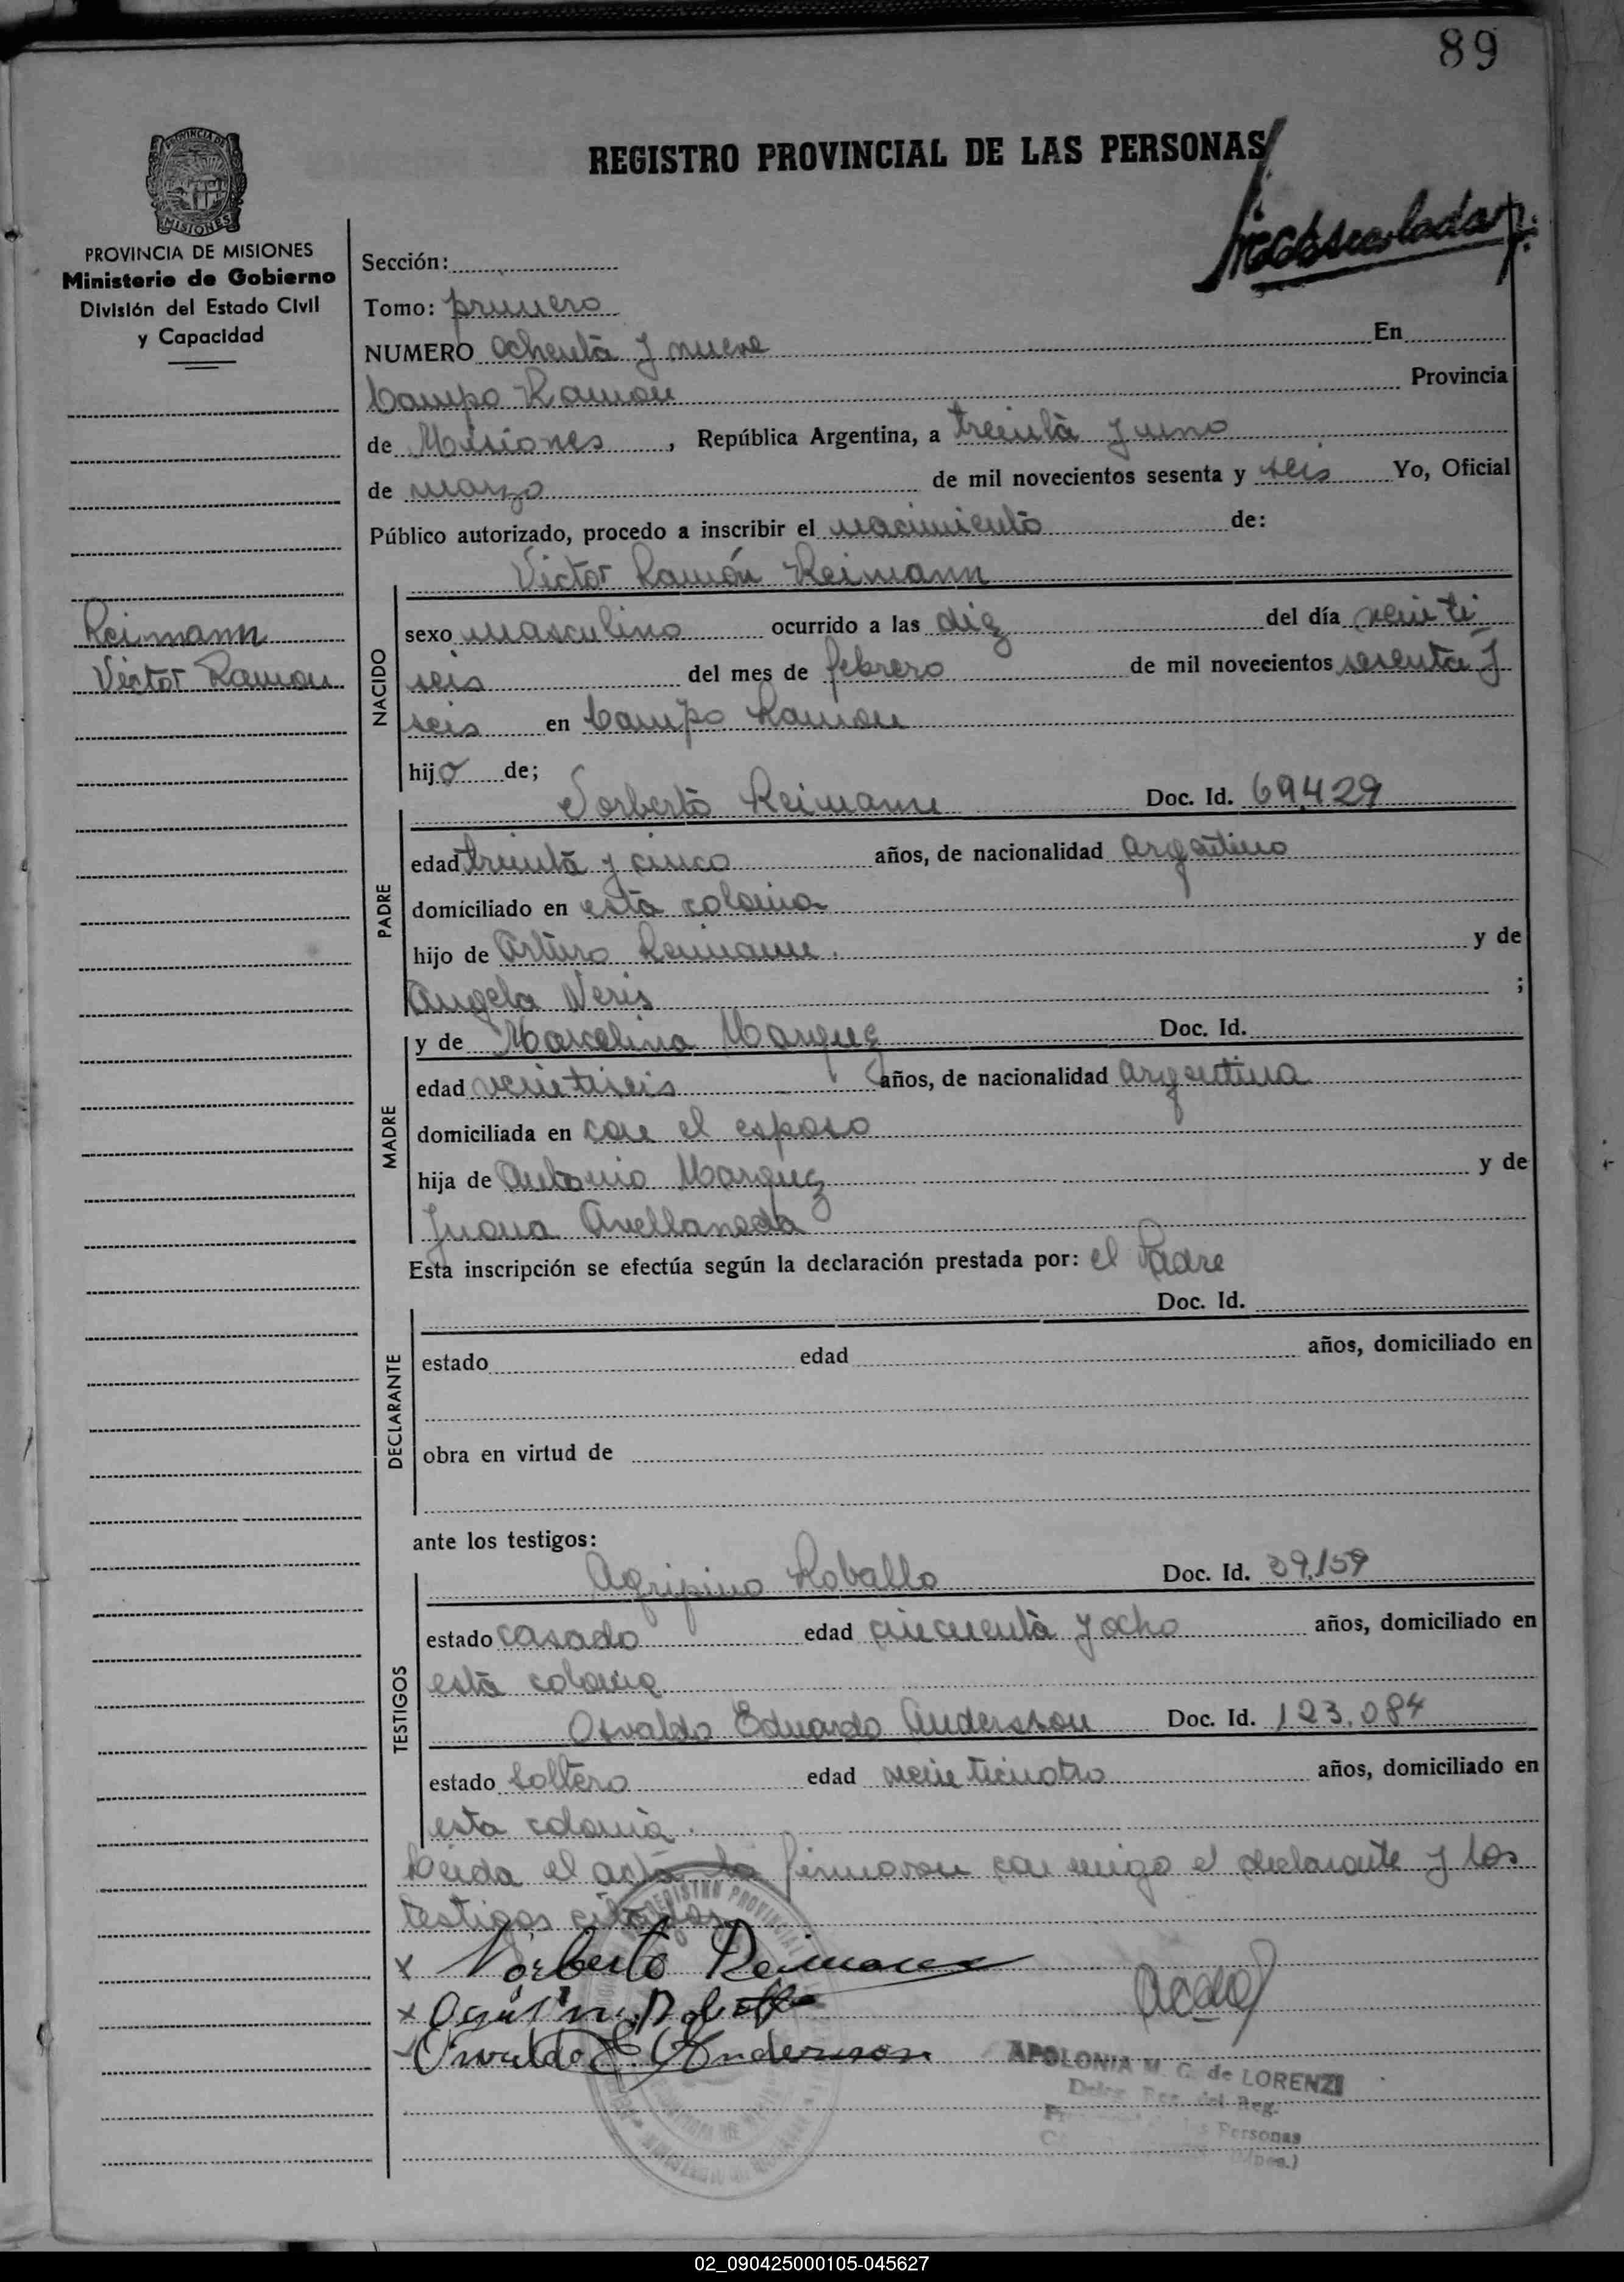 89
REGISTRO PROVINCIAL DE LAS PERSONAS
PROVINCIA DE
MISIONES
PROVINCIA DE MISIONES
Ministerio de Gobierno
División del Estado Civil
y Capacidad
Reimann
Victor Ramon
Sección:
Tomo: primero
NUMERO ochenta y nueve En
Campo Ramon Provincia
de Misiones, República Argentina, a treinta y uno
de marzo de mil novecientos sesenta y seis Yo, Oficial
Público autorizado, procedo a inscribir el nacimiento de:
Victor Ramón Reimann
NACIDO
sexo masculino ocurrido a las diez del día veinti
seis del mes de febrero de mil novecientos sesenta y
seis en Campo Ramon
hijo de;
Norberto Reimann Doc. Id. 69.429
PADRE
edad treinta y cinco años, de nacionalidad argentino
domiciliado en esta colonia
hijo de Arturo Reimann. y de
Angela Neris ;
y de Marcelina Marquez Doc. Id.
MADRE
edad veintiseis años, de nacionalidad argentina
domiciliada en con el esposo
hija de Antonio Marquez y de
Juana Avellaneda
Esta inscripción se efectúa según la declaración prestada por: el Padre
Doc. Id.
DECLARANTE
estado edad años, domiciliado en
obra en virtud de
ante los testigos:
Agripino Roballo Doc. Id. 39.159
TESTIGOS
estado casado edad cincuenta y ocho años, domiciliado en
esta colonia
Osvaldo Eduardo Andersson Doc. Id. 123.084
estado soltero edad veinticuatro años, domiciliado en
esta colonia.
Leida el acta la firmaron conmigo el declarante y los
testigos citados
x Norberto Reimann
x
Osvaldo E. Andersson
REGISTRO PROVINCIAL
APOLONIA M. G. de LORENZI
Reg.
Personas
02_090425000105-045627